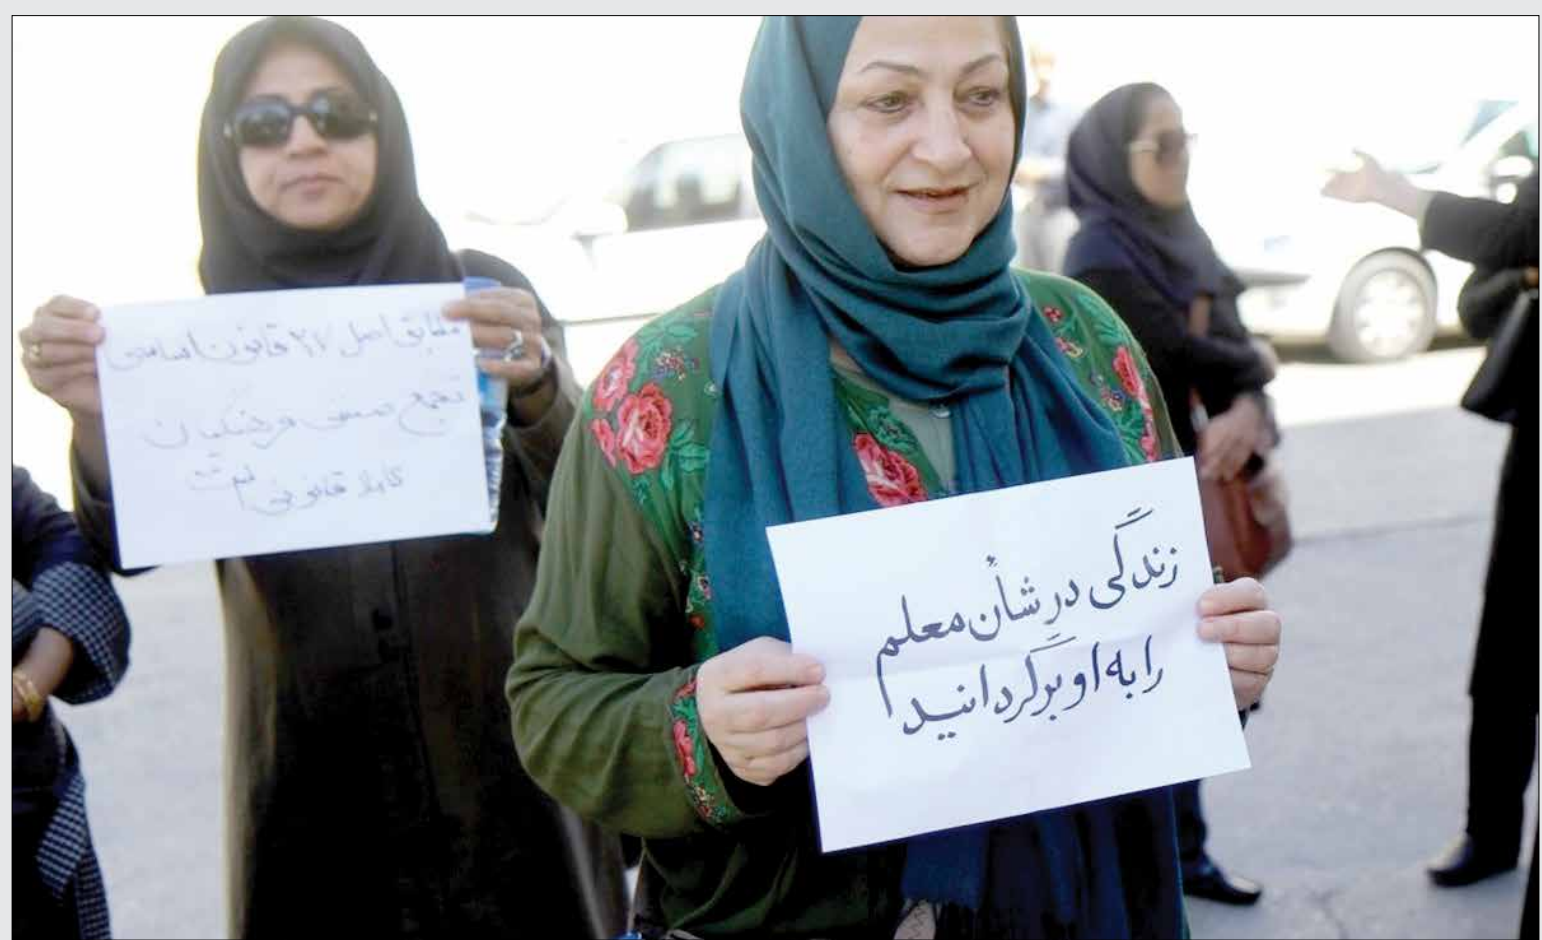 مطابق اصل ۲۷ قانون اساسی
تجمع صنفی فرهنگیان
کاملا قانونی است
زندگی در شأن معلم
را به او برگردانید